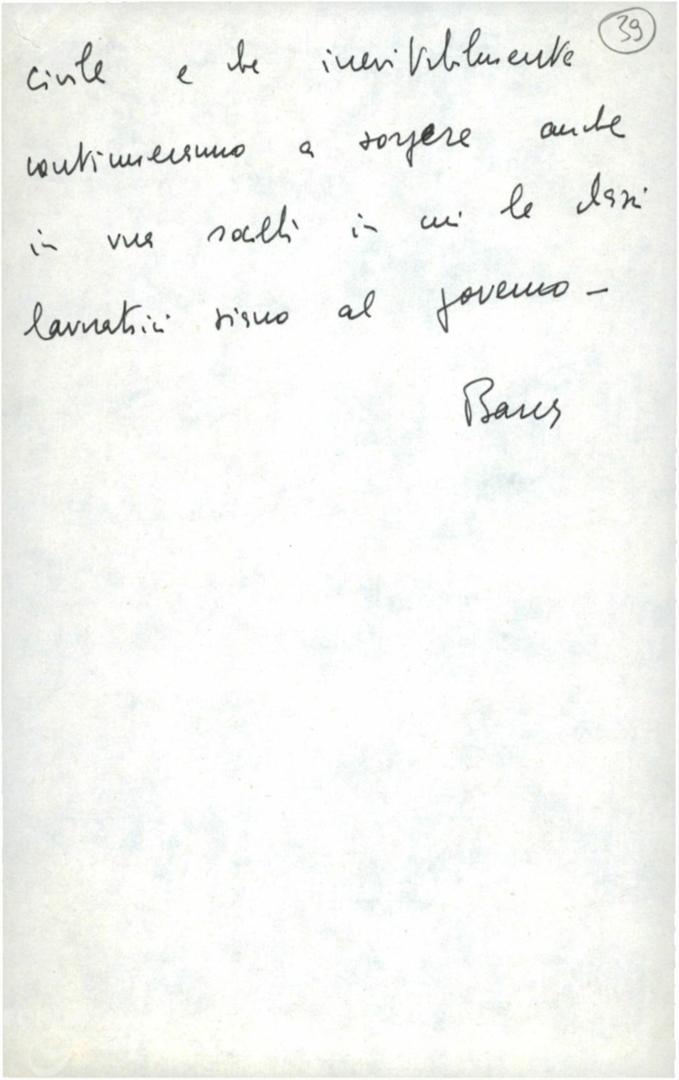 39
civile e che inevitabilmente
continueranno a sorgere anche
in una società in cui le classi
lavoratrici siano al governo -